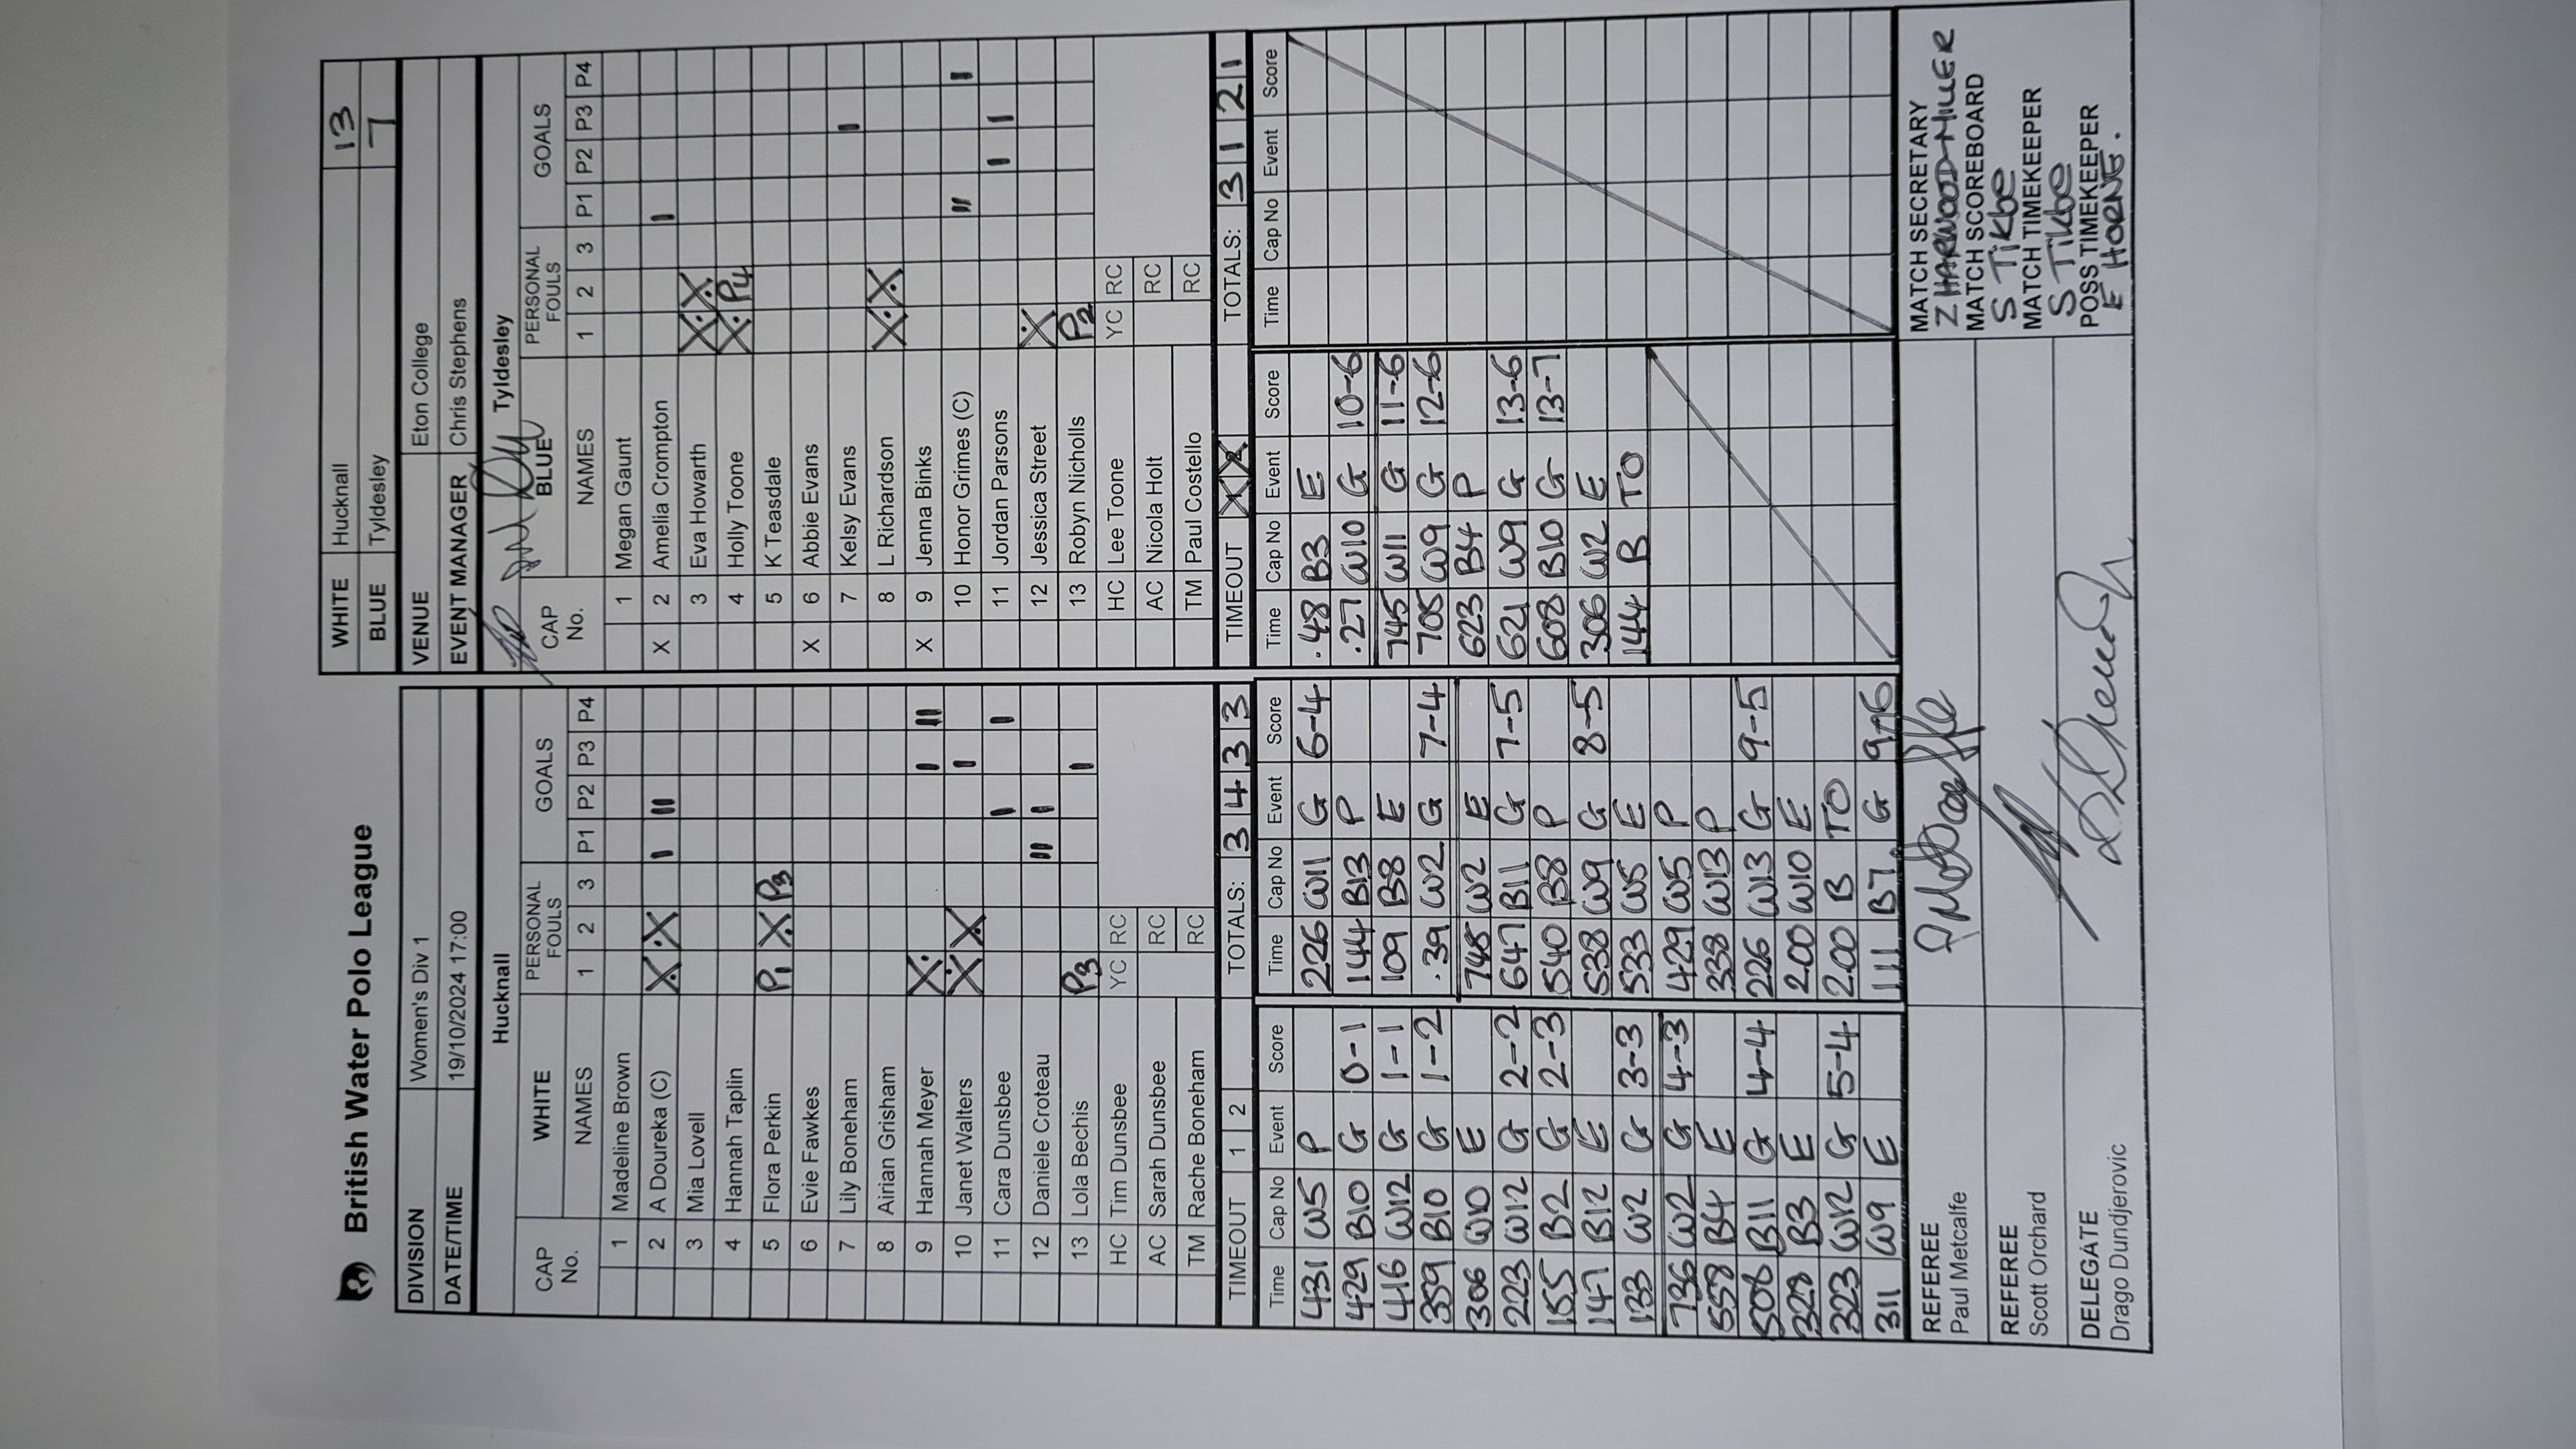 British Water Polo League
WHITE Hucknall 13
BLUE Tyldesley 7
DIVISION Women's Div 1 VENUE Eton College
DATE/TIME 19/10/2024 17:00 EVENT MANAGER Chris Stephens
Hucknall
CAP No. WHITE NAMES PERSONAL FOULS 1 2 3 GOALS P1 P2 P3 P4
1 Madeline Brown
2 A Doureka (C) X X I II
3 Mia Lovell
4 Hannah Taplin
5 Flora Perkin P1 X P3
6 Evie Fawkes
7 Lily Boneham
8 Airian Grisham
9 Hannah Meyer X I II
10 Janet Walters X X I
11 Cara Dunsbee I I
12 Daniele Croteau II I
13 Lola Bechis P3 I
HC Tim Dunsbee YC RC
AC Sarah Dunsbee RC
TM Rache Boneham RC
TIMEOUT 1 2 TOTALS: 3 4 3 3
Tyldesley
CAP No. BLUE NAMES PERSONAL FOULS 1 2 3 GOALS P1 P2 P3 P4
1 Megan Gaunt
X 2 Amelia Crompton I
3 Eva Howarth X X
4 Holly Toone X P4
5 K Teasdale
X 6 Abbie Evans
7 Kelsy Evans I
8 L Richardson X X
X 9 Jenna Binks
10 Honor Grimes (C) II I
11 Jordan Parsons I I
12 Jessica Street X
13 Robyn Nicholls P2
HC Lee Toone YC RC
AC Nicola Holt RC
TM Paul Costello RC
TIMEOUT X X TOTALS: 3 1 2 1
Time Cap No Event Score
431 W5 P
429 B10 G 0-1
416 W12 G 1-1
359 B10 G 1-2
306 W10 E
223 W12 G 2-2
155 B2 G 2-3
147 B12 E
133 W2 G 3-3
736 W2 G 4-3
558 B4 E
508 B11 G 4-4
328 B3 E
323 W12 G 5-4
311 W9 E
Time Cap No Event Score
226 W11 G 6-4
144 B13 P
109 B8 E
.39 W2 G 7-4
748 W2 E
647 B11 G 7-5
540 B8 P
538 W9 G 8-5
533 W5 E
429 W5 P
338 W13 P
226 W13 G 9-5
2.00 W10 E
2.00 B TO
111 B7 G 9-6
Time Cap No Event Score
.48 B3 E
.27 W10 G 10-6
745 W11 G 11-6
705 W9 G 12-6
623 B4 P
621 W9 G 13-6
608 B10 G 13-7
306 W2 E
144 B TO
Time Cap No Event Score
REFEREE
Paul Metcalfe
REFEREE
Scott Orchard
DELEGATE
Drago Dundjerovic
MATCH SECRETARY
Z HARWOOD-MILLER
MATCH SCOREBOARD
S Tikbe
MATCH TIMEKEEPER
S Tikbe
POSS TIMEKEEPER
E HORNE.